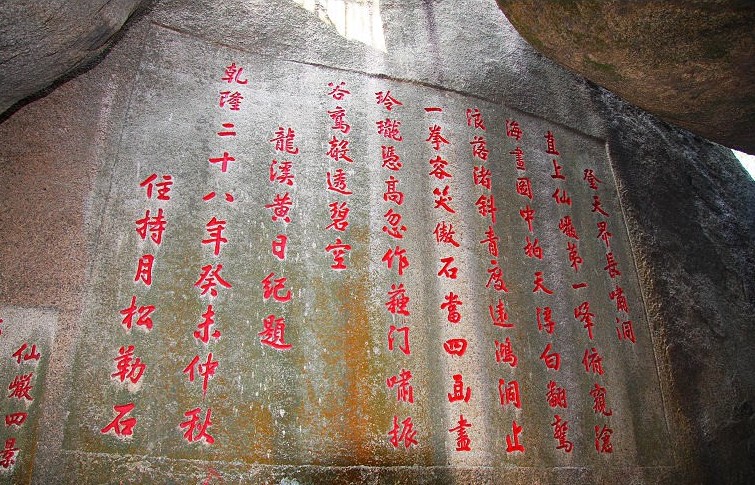 登天界長嘯洞
直上仙巖第一峰俯窺滄
海畫圖中拍天浮白翻驚
浪落渚斜青度遠鴻洞止
一拳容笑傲石當四面盡
玲瓏憑高忽作蘓門嘯振
谷鸞聲透碧空
龍溪黃日紀題
乾隆二十八年癸未仲秋
住持月松勒石
仙巖四景